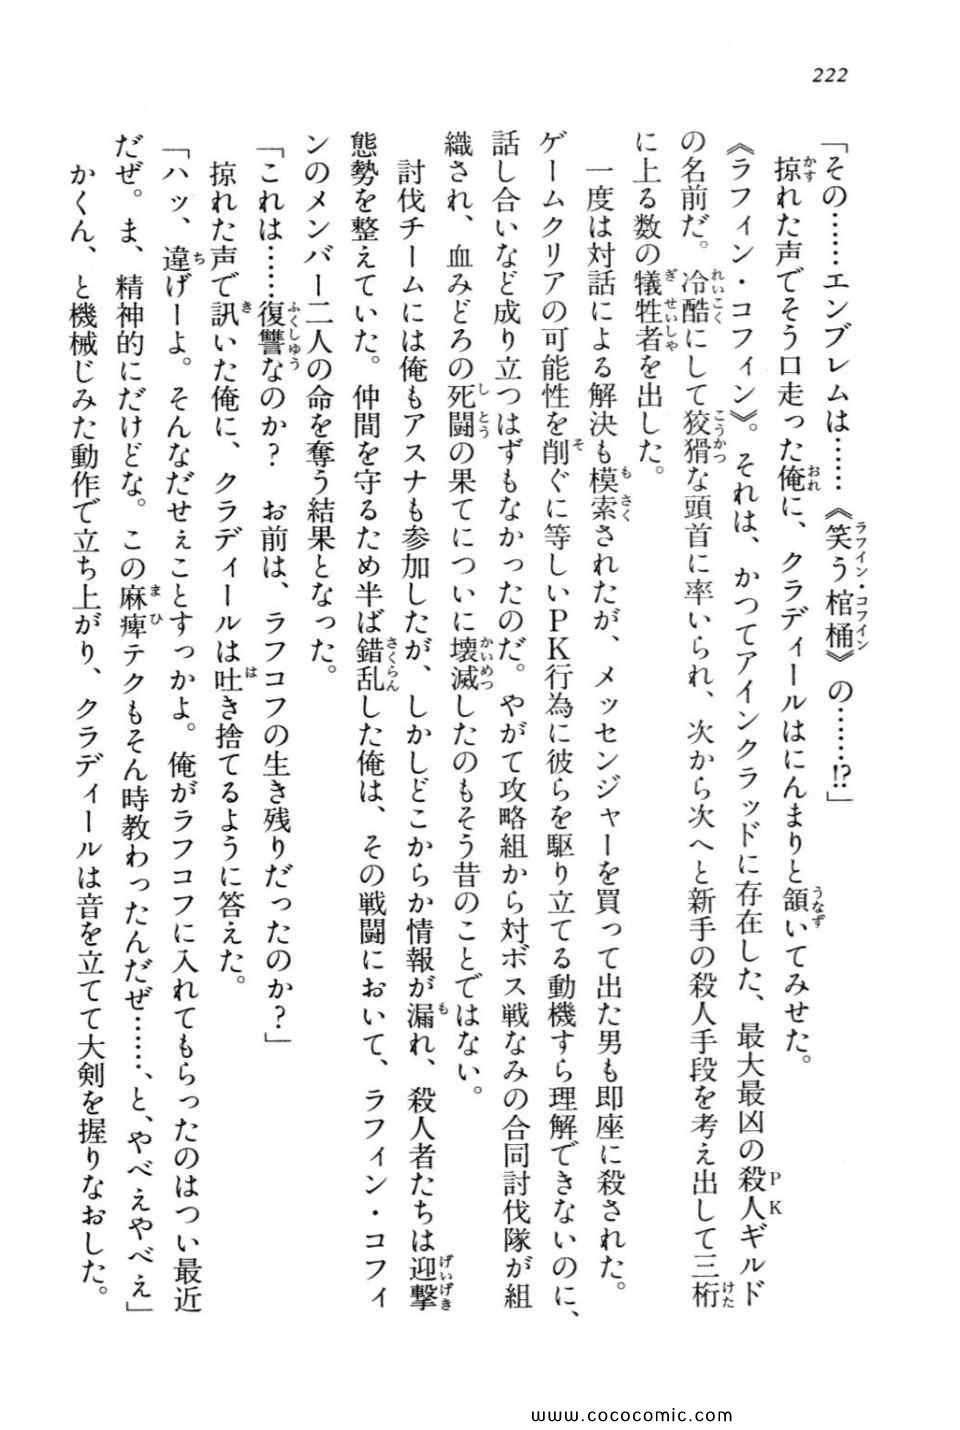 222
「その……エンブレムは……《笑う棺桶》の……!?」
掠れた声でそう口走った俺に、クラディールはにんまりと頷いてみせた。
《ラフィン・コフィン》。それは、かつてアインクラッドに存在した、最大最凶の殺人ギルド
の名前だ。冷酷にして狡猾な頭首に率いられ、次から次へと新手の殺人手段を考え出して三桁
に上る数の犠牲者を出した。
一度は対話による解決も模索されたが、メッセンジャーを買って出た男も即座に殺された。
ゲームクリアの可能性を削ぐに等しいPK行為に彼らを駆り立てる動機すら理解できないのに、
話し合いなど成り立つはずもなかったのだ。やがて攻略組から対ボス戦なみの合同討伐隊が組
織され、血みどろの死闘の果てについに壊滅したのもそう昔のことではない。
討伐チームには俺もアスナも参加したが、しかしどこからか情報が漏れ、殺人者たちは迎撃
態勢を整えていた。仲間を守るため半ば錯乱した俺は、その戦闘において、ラフィン・コフィ
ンのメンバー二人の命を奪う結果となった。
「これは……復讐なのか? お前は、ラフコフの生き残りだったのか?」
掠れた声で訊いた俺に、クラディールは吐き捨てるように答えた。
「ハッ、違げーよ。そんなだせぇことすっかよ。俺がラフコフに入れてもらったのはつい最近
だぜ。ま、精神的にだけどな。この麻痺テクもそん時教わったんだぜ……、と、やべぇやべぇ」
かくん、と機械じみた動作で立ち上がり、クラディールは音を立てて大剣を握りなおした。
www.cococomic.com